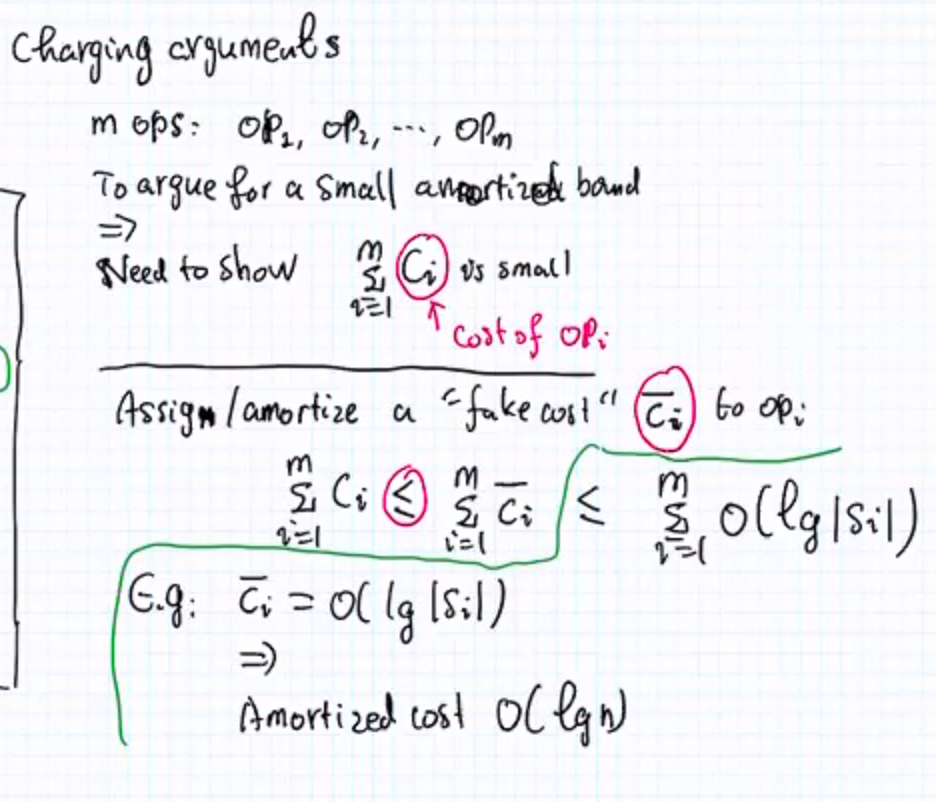 Charging arguments
m ops: OP₁, OP₂, ..., OPₘ
To argue for a small amortized band
⇒
Need to show Σᵢ₌₁ᵐ Cᵢ is small
↑ Cost of OPᵢ
Assign/amortize a "fake cost" C̅ᵢ to opᵢ
Σᵢ₌₁ᵐ Cᵢ ≤ Σᵢ₌₁ᵐ C̅ᵢ ≤ Σᵢ₌₁ᵐ O(lg |Sᵢ|)
E.g: C̅ᵢ = O(lg |Sᵢ|)
⇒
Amortized cost O(lg n)